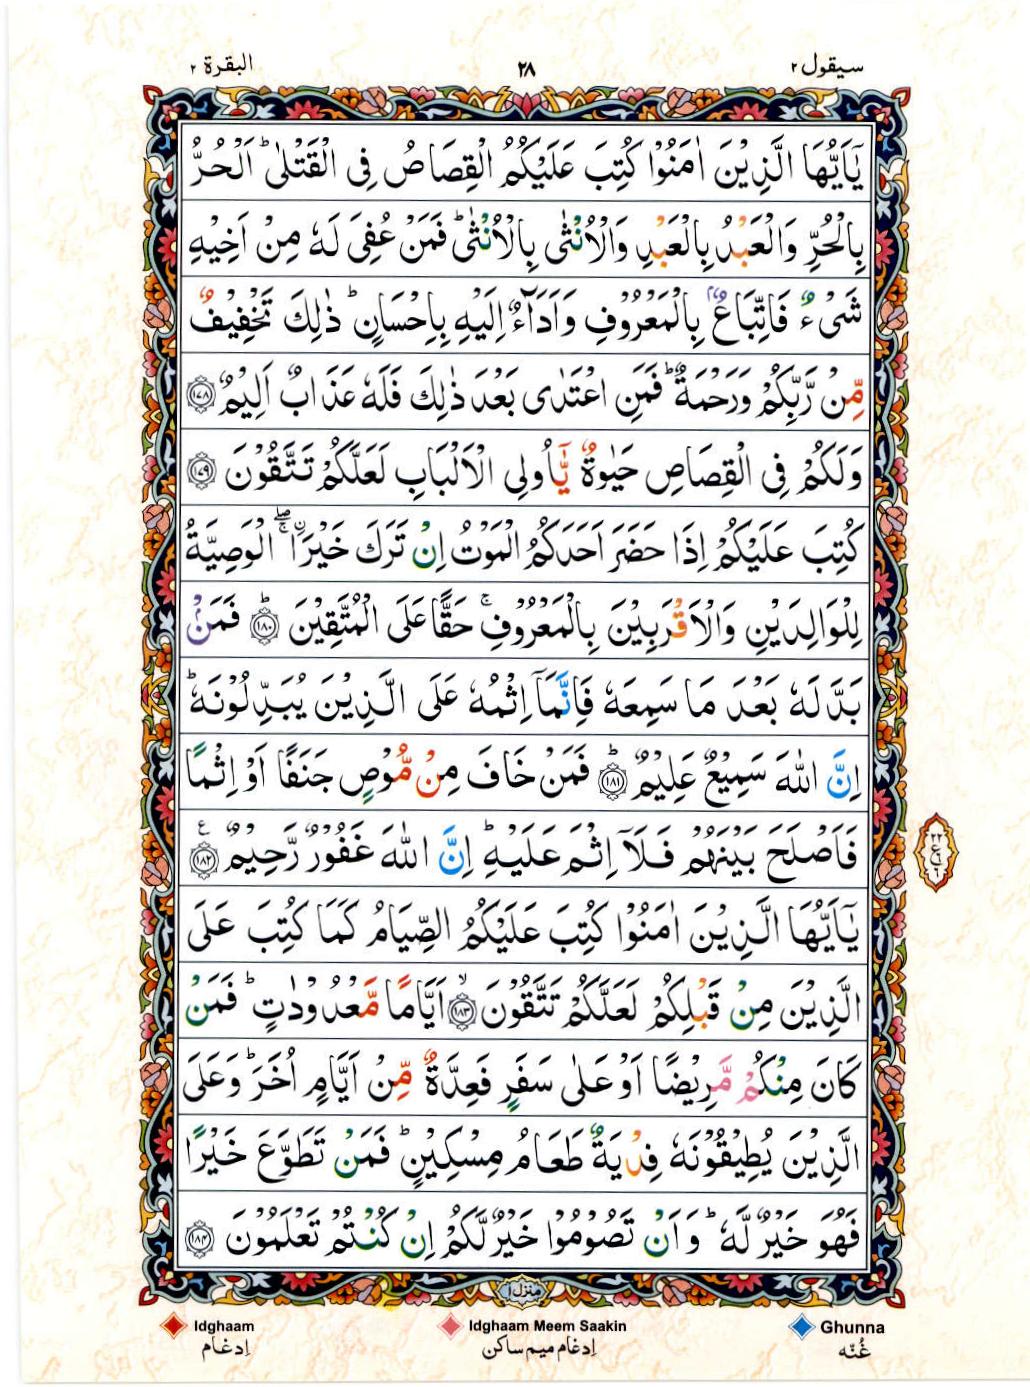 سيقول ٢
٢٨
البقرة ٢
يٰۤاَيُّهَا الَّذِيْنَ اٰمَنُوْا كُتِبَ عَلَيْكُمُ الْقِصَاصُ فِى الْقَتْلٰىؕ اَلْحُرُّ
بِالْحُرِّ وَالْعَبْدُ بِالْعَبْدِ وَالْاُنْثٰى بِالْاُنْثٰىؕ فَمَنْ عُفِىَ لَهٗ مِنْ اَخِيْهِ
شَىْءٌ فَاتِّبَاعٌۢ بِالْمَعْرُوْفِ وَاَدَآءٌ اِلَيْهِ بِاِحْسَانٍؕ ذٰلِكَ تَخْفِيْفٌ
مِّنْ رَّبِّكُمْ وَرَحْمَةٌؕ فَمَنِ اعْتَدٰى بَعْدَ ذٰلِكَ فَلَهٗ عَذَابٌ اَلِيْمٌ ﴿۱۷۸﴾
وَلَكُمْ فِى الْقِصَاصِ حَيٰوةٌ يّٰۤاُولِى الْاَلْبَابِ لَعَلَّكُمْ تَتَّقُوْنَ ﴿۱۷۹﴾
كُتِبَ عَلَيْكُمْ اِذَا حَضَرَ اَحَدَكُمُ الْمَوْتُ اِنْ تَرَكَ خَيْرَا ۖۚ اۨلْوَصِيَّةُ
لِلْوَالِدَيْنِ وَالْاَقْرَبِيْنَ بِالْمَعْرُوْفِۚ حَقًّا عَلَى الْمُتَّقِيْنَؕ ﴿۱۸۰﴾ فَمَنْۢ
بَدَّلَهٗ بَعْدَ مَا سَمِعَهٗ فَاِنَّمَاۤ اِثْمُهٗ عَلَى الَّذِيْنَ يُبَدِّلُوْنَهٗؕ
اِنَّ اللّٰهَ سَمِيْعٌ عَلِيْمٌؕ ﴿۱۸۱﴾ فَمَنْ خَافَ مِنْ مُّوْصٍ جَنَفًا اَوْ اِثْمًا
فَاَصْلَحَ بَيْنَهُمْ فَلَاۤ اِثْمَ عَلَيْهِؕ اِنَّ اللّٰهَ غَفُوْرٌ رَّحِيْمٌ ﴿۱۸۲﴾ ع
يٰۤاَيُّهَا الَّذِيْنَ اٰمَنُوْا كُتِبَ عَلَيْكُمُ الصِّيَامُ كَمَا كُتِبَ عَلَى
الَّذِيْنَ مِنْ قَبْلِكُمْ لَعَلَّكُمْ تَتَّقُوْنَۙ ﴿۱۸۳﴾ اَيَّامًا مَّعْدُوْدٰتٍؕ فَمَنْ
كَانَ مِنْكُمْ مَّرِيْضًا اَوْ عَلٰى سَفَرٍ فَعِدَّةٌ مِّنْ اَيَّامٍ اُخَرَؕ وَعَلَى
الَّذِيْنَ يُطِيْقُوْنَهٗ فِدْيَةٌ طَعَامُ مِسْكِيْنٍؕ فَمَنْ تَطَوَّعَ خَيْرًا
فَهُوَ خَيْرٌ لَّهٗؕ وَاَنْ تَصُوْمُوْا خَيْرٌ لَّكُمْ اِنْ كُنْتُمْ تَعْلَمُوْنَ ﴿۱۸۴﴾
منزل ١
Idghaam
اِدغام
Idghaam Meem Saakin
اِدغام ميم ساكن
Ghunna
غُنّه